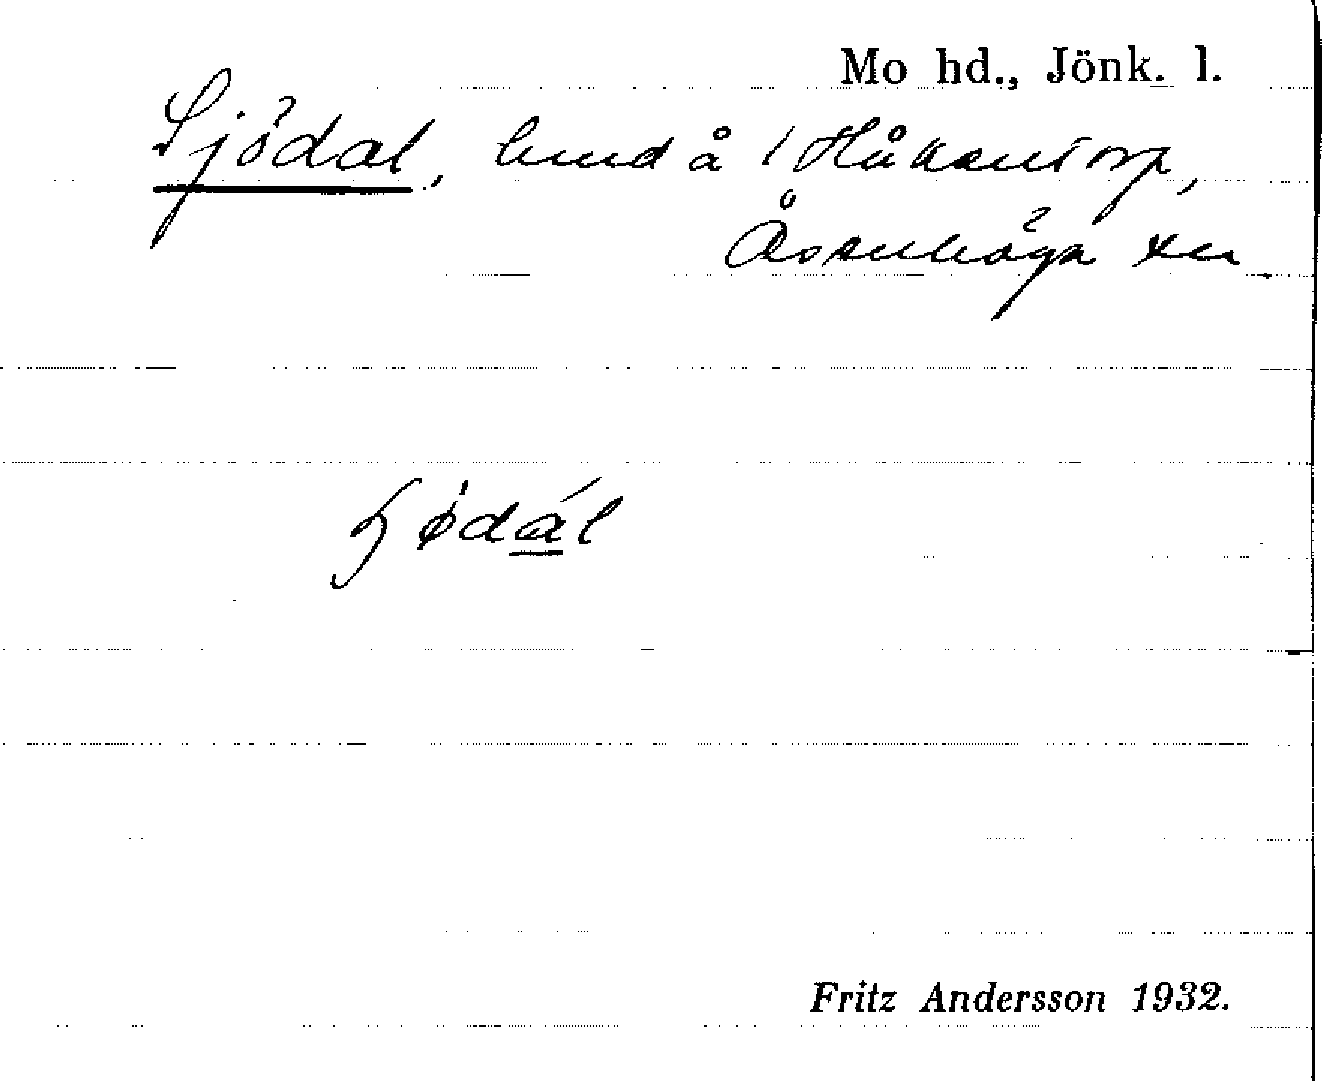 Mo hd., Jönk. l.
Sjödal, lund å 1 Håkentorp,
Åsenhöga sn
ɧødál
Fritz Andersson 1932.